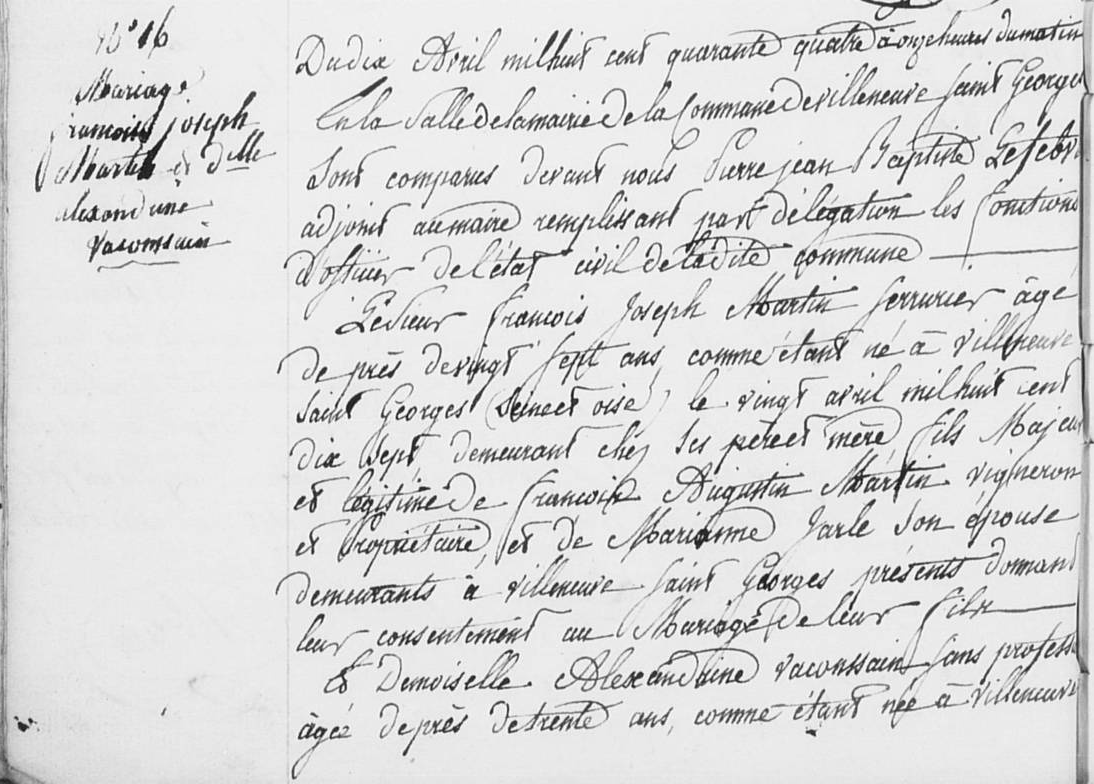 N° 16
Mariage
françois joseph
Martin et dlle
alexandrine
vaconssain
Du dix Avril mil huit cent quarante quatre à onze heures du matin
En la Salle de la mairie de la Commune de villeneuve Saint Georges
Sont comparus devant nous Pierre jean Baptiste Lefebvre
adjoint au maire remplissant par délégation les fonctions
d'officier de l'état civil de ladite commune
Le Sieur françois Joseph Martin Serrurier âgé
de près de vingt Sept ans, comme étant né à villeneuve
Saint Georges (Seine et oise) le vingt avril mil huit cent
dix Sept demeurant chez Ses père et mère fils Majeur
et légitime de françois Augustin Martin vigneron
et Propriétaire, et de Marianne Jarle Son épouse
demeurants à villeneuve Saint Georges présents donnant
leur consentement au Mariage de leur fils
Et Demoiselle Alexandrine vaconssain Sans profess
âgée de près de trente ans, comme étant née à villeneuve